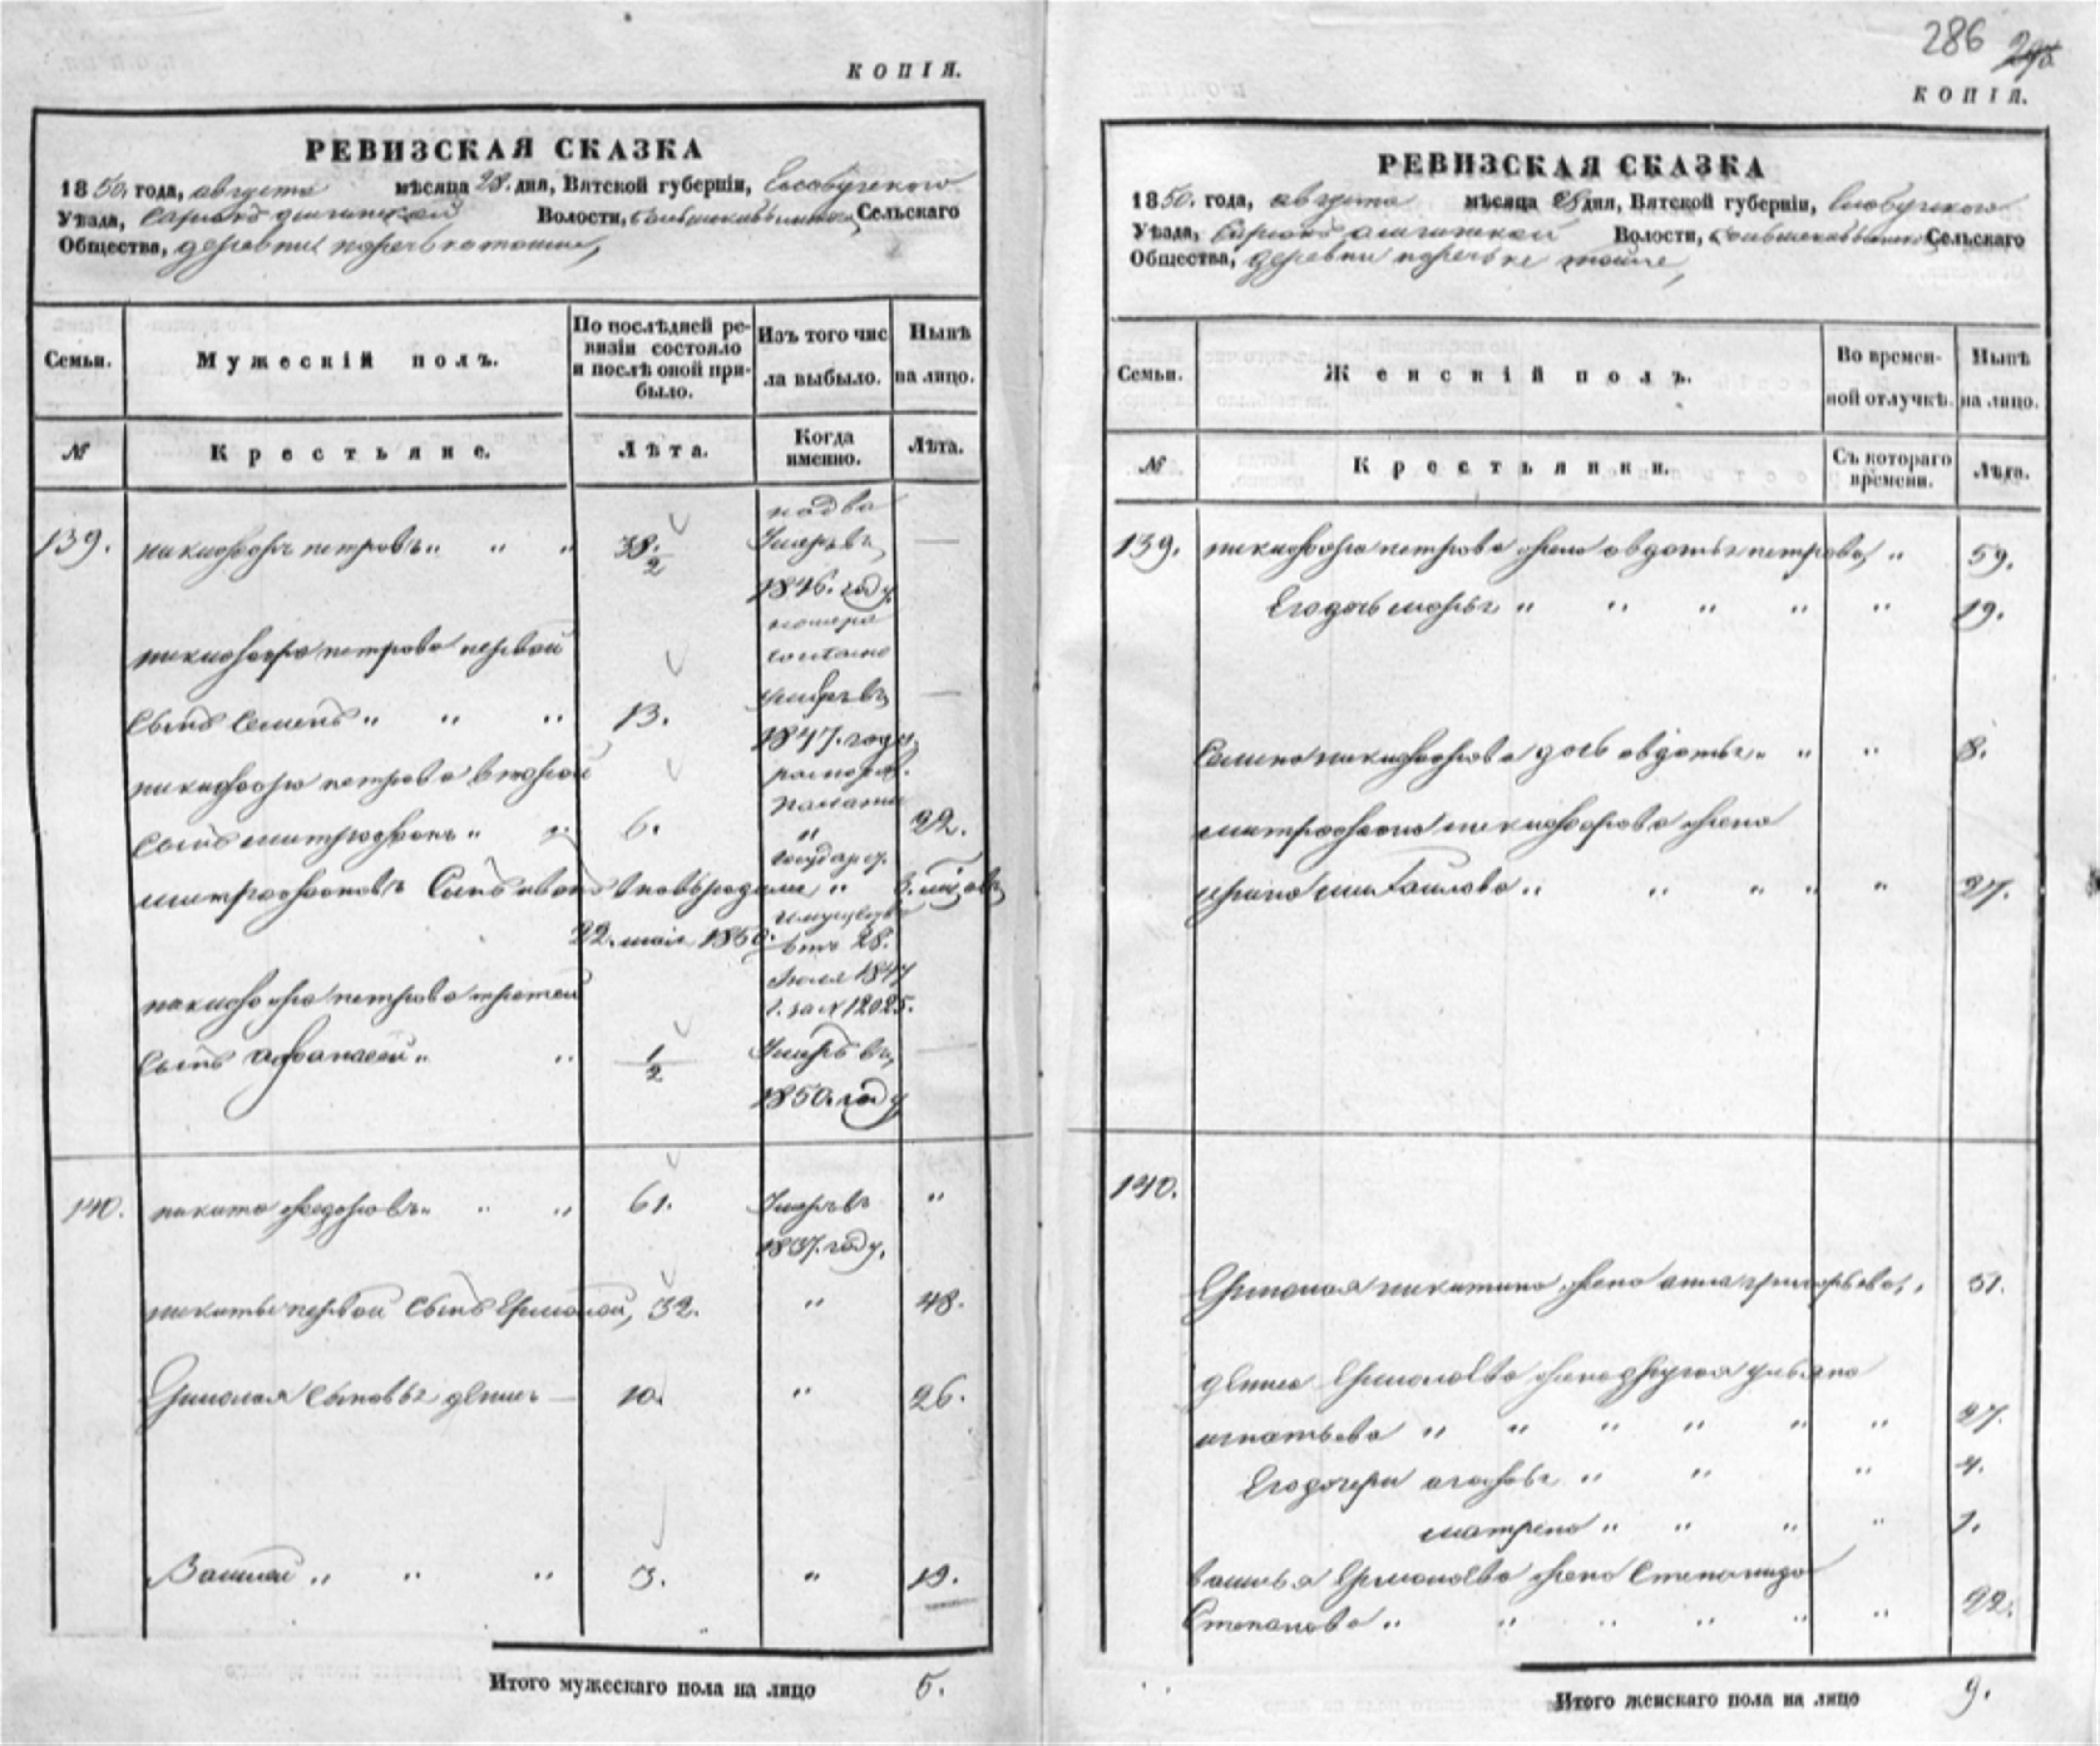 КОПІЯ.
РЕВИЗСКАЯ СКАЗКА
1850. года, августа мѣсяца 28. дня, Вятской губерніи, Елабужского
Уѣзда, Волости, Сельскаго
Общества, деревни
Семьи.
Мужескій полъ.
По послѣдней ре-
визіи состояло
и послѣ оной при-
было.
Изъ того чис
ла выбыло.
Нынѣ
на лицо.
№
Крестьяне.
Лѣта.
Когда
именно.
Лѣта.
надва
139. никифоръ петровъ „ „ „ 38. умеръ въ —
2
1846. году
номера
никифора петрова первой согласно
сынъ Семенъ „ „ „ 13. умеръ въ —
1847. году
никифора петрова второй распоряж.
палаты
сынъ митрофанъ „ „ 6. „ 22.
государст.
митрофановъ Сынъ иванъ вновьрожденъ „ 3. мѣсяц
22. мая 1850. имуществъ
отъ 28.
никифора петрова третей Іюля 1847
г. за № 12025.
сынъ афанасей „ „ 1/2 Умеръ въ —
1850. году
140. никита федоровъ „ „ „ 61. Умеръ въ „
1837. году,
никиты первой сынъ Ермолай, 32. „ 48.
Ермолая сыновья — 10. „ 26.
Василей „ „ „ 3. „ 19.
Итого мужескаго пола на лицо 5.
286
КОПІЯ.
РЕВИЗСКАЯ СКАЗКА
1850. года, августа мѣсяца 28 дня, Вятской губерніи, Елабужского
Уѣзда, Волости, Сельскаго
Общества, деревни
Семьи.
Женскій полъ.
Во времен-
ной отлучкѣ.
Нынѣ
на лицо.
№
Крестьянки.
Съ котораго
времени.
Лѣта.
139. никифора петрова жена авдотья петрова „ 59.
Его дочь марья „ „ „ „ „ 19.
Семена никифорова дочь авдотья „ „ „ 8.
митрофана никифорова жена
ирина михайлова „ „ „ „ „ 27.
140.
Ермолая никитина жена анна григорьева „ 51.
Ермолаева жена другая ульяна
игнатьева „ „ „ „ „ „ 27.
Его дочери агафья „ „ „ 4.
матрена „ „ „ „ 1.
василья Ермолаева жена Степанида
Степанова „ „ „ „ „ „ 22.
Итого женскаго пола на лицо 9.